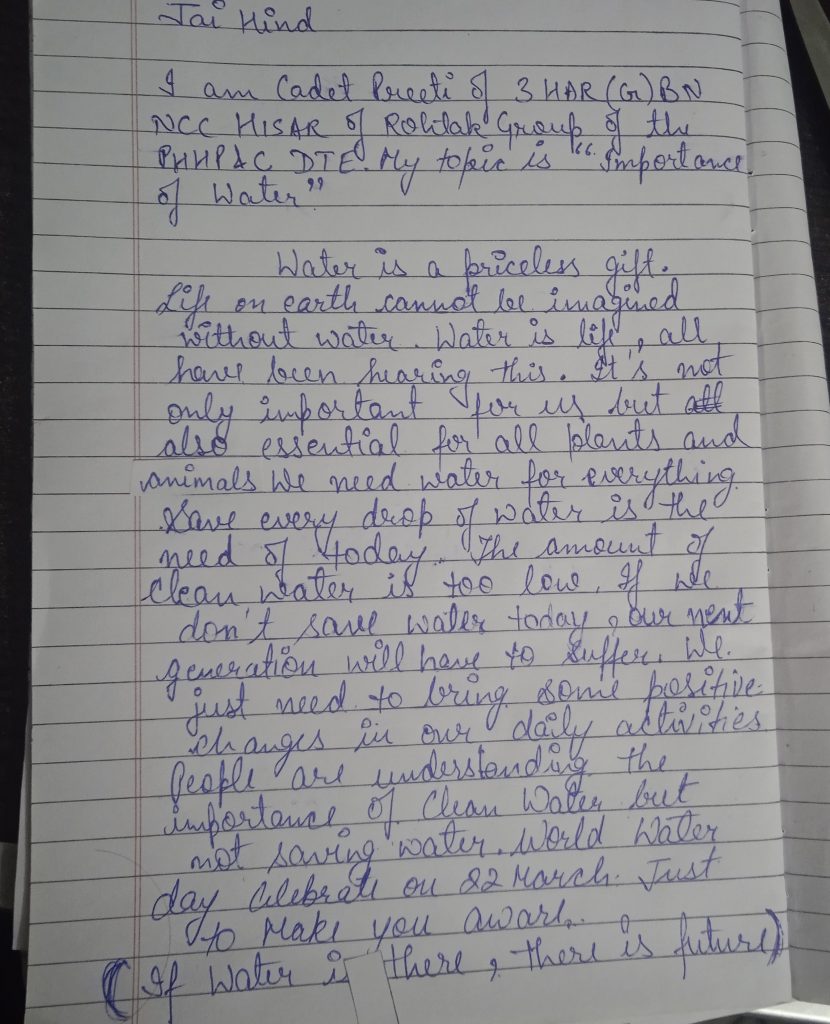 Jai Hind
I am Cadet Preeti of 3 HAR (G) BN
NCC HISAR of Rohtak Group of the
PHHP&C DTE. My topic is "Importance
of Water"
Water is a priceless gift.
Life on earth cannot be imagined
without water. Water is life, all
have been hearing this. It's not
only important for us but all
also essential for all plants and
animals We need water for everything.
Save every drop of water is the
need of today. The amount of
Clean water is too low. If we
don't save water today, our next
generation will have to suffer. We.
just need to bring some positive
changes in our daily activities
People are understanding the
importance of Clean Water but
not saving water. World Water
day Celebrate on 22 March. Just
to Make you aware.
(If Water is there, there is future)